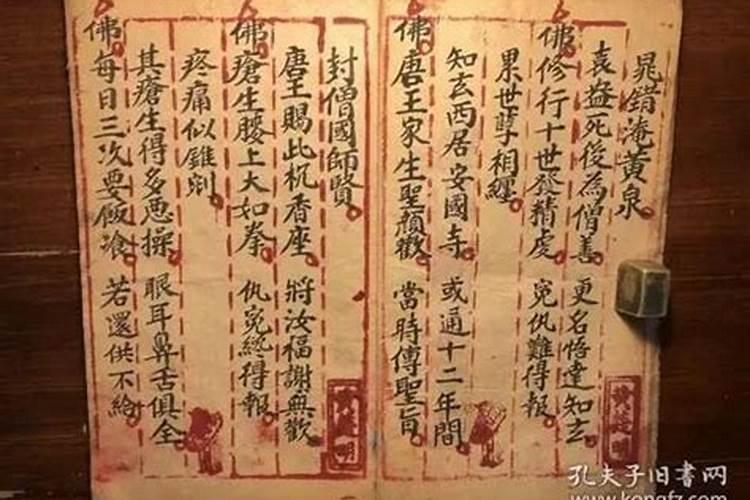 晁錯淹黃泉
袁益死後為僧善 更名悟達知玄
佛修行十世發精虔 冤仇難得報
累世孽相纏
知玄西居安國寺 或通十二年間
佛唐王家生聖顏歡 當時傳聖旨
封僧國師賢
唐王賜此杋香座 將汝福謝無歡
佛瘡生腰上大如拳 仇冤終得報
疼痛似錐剜
其瘡生得多悪操 眼耳鼻舌俱全
佛每日三次要飯飡 若還供不給
孔夫子旧书网
www.kongfz.com